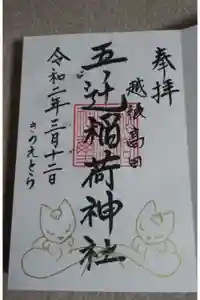 奉拝
越後高田
五辻稲荷神社
令和二年三月十二日
きのえとら